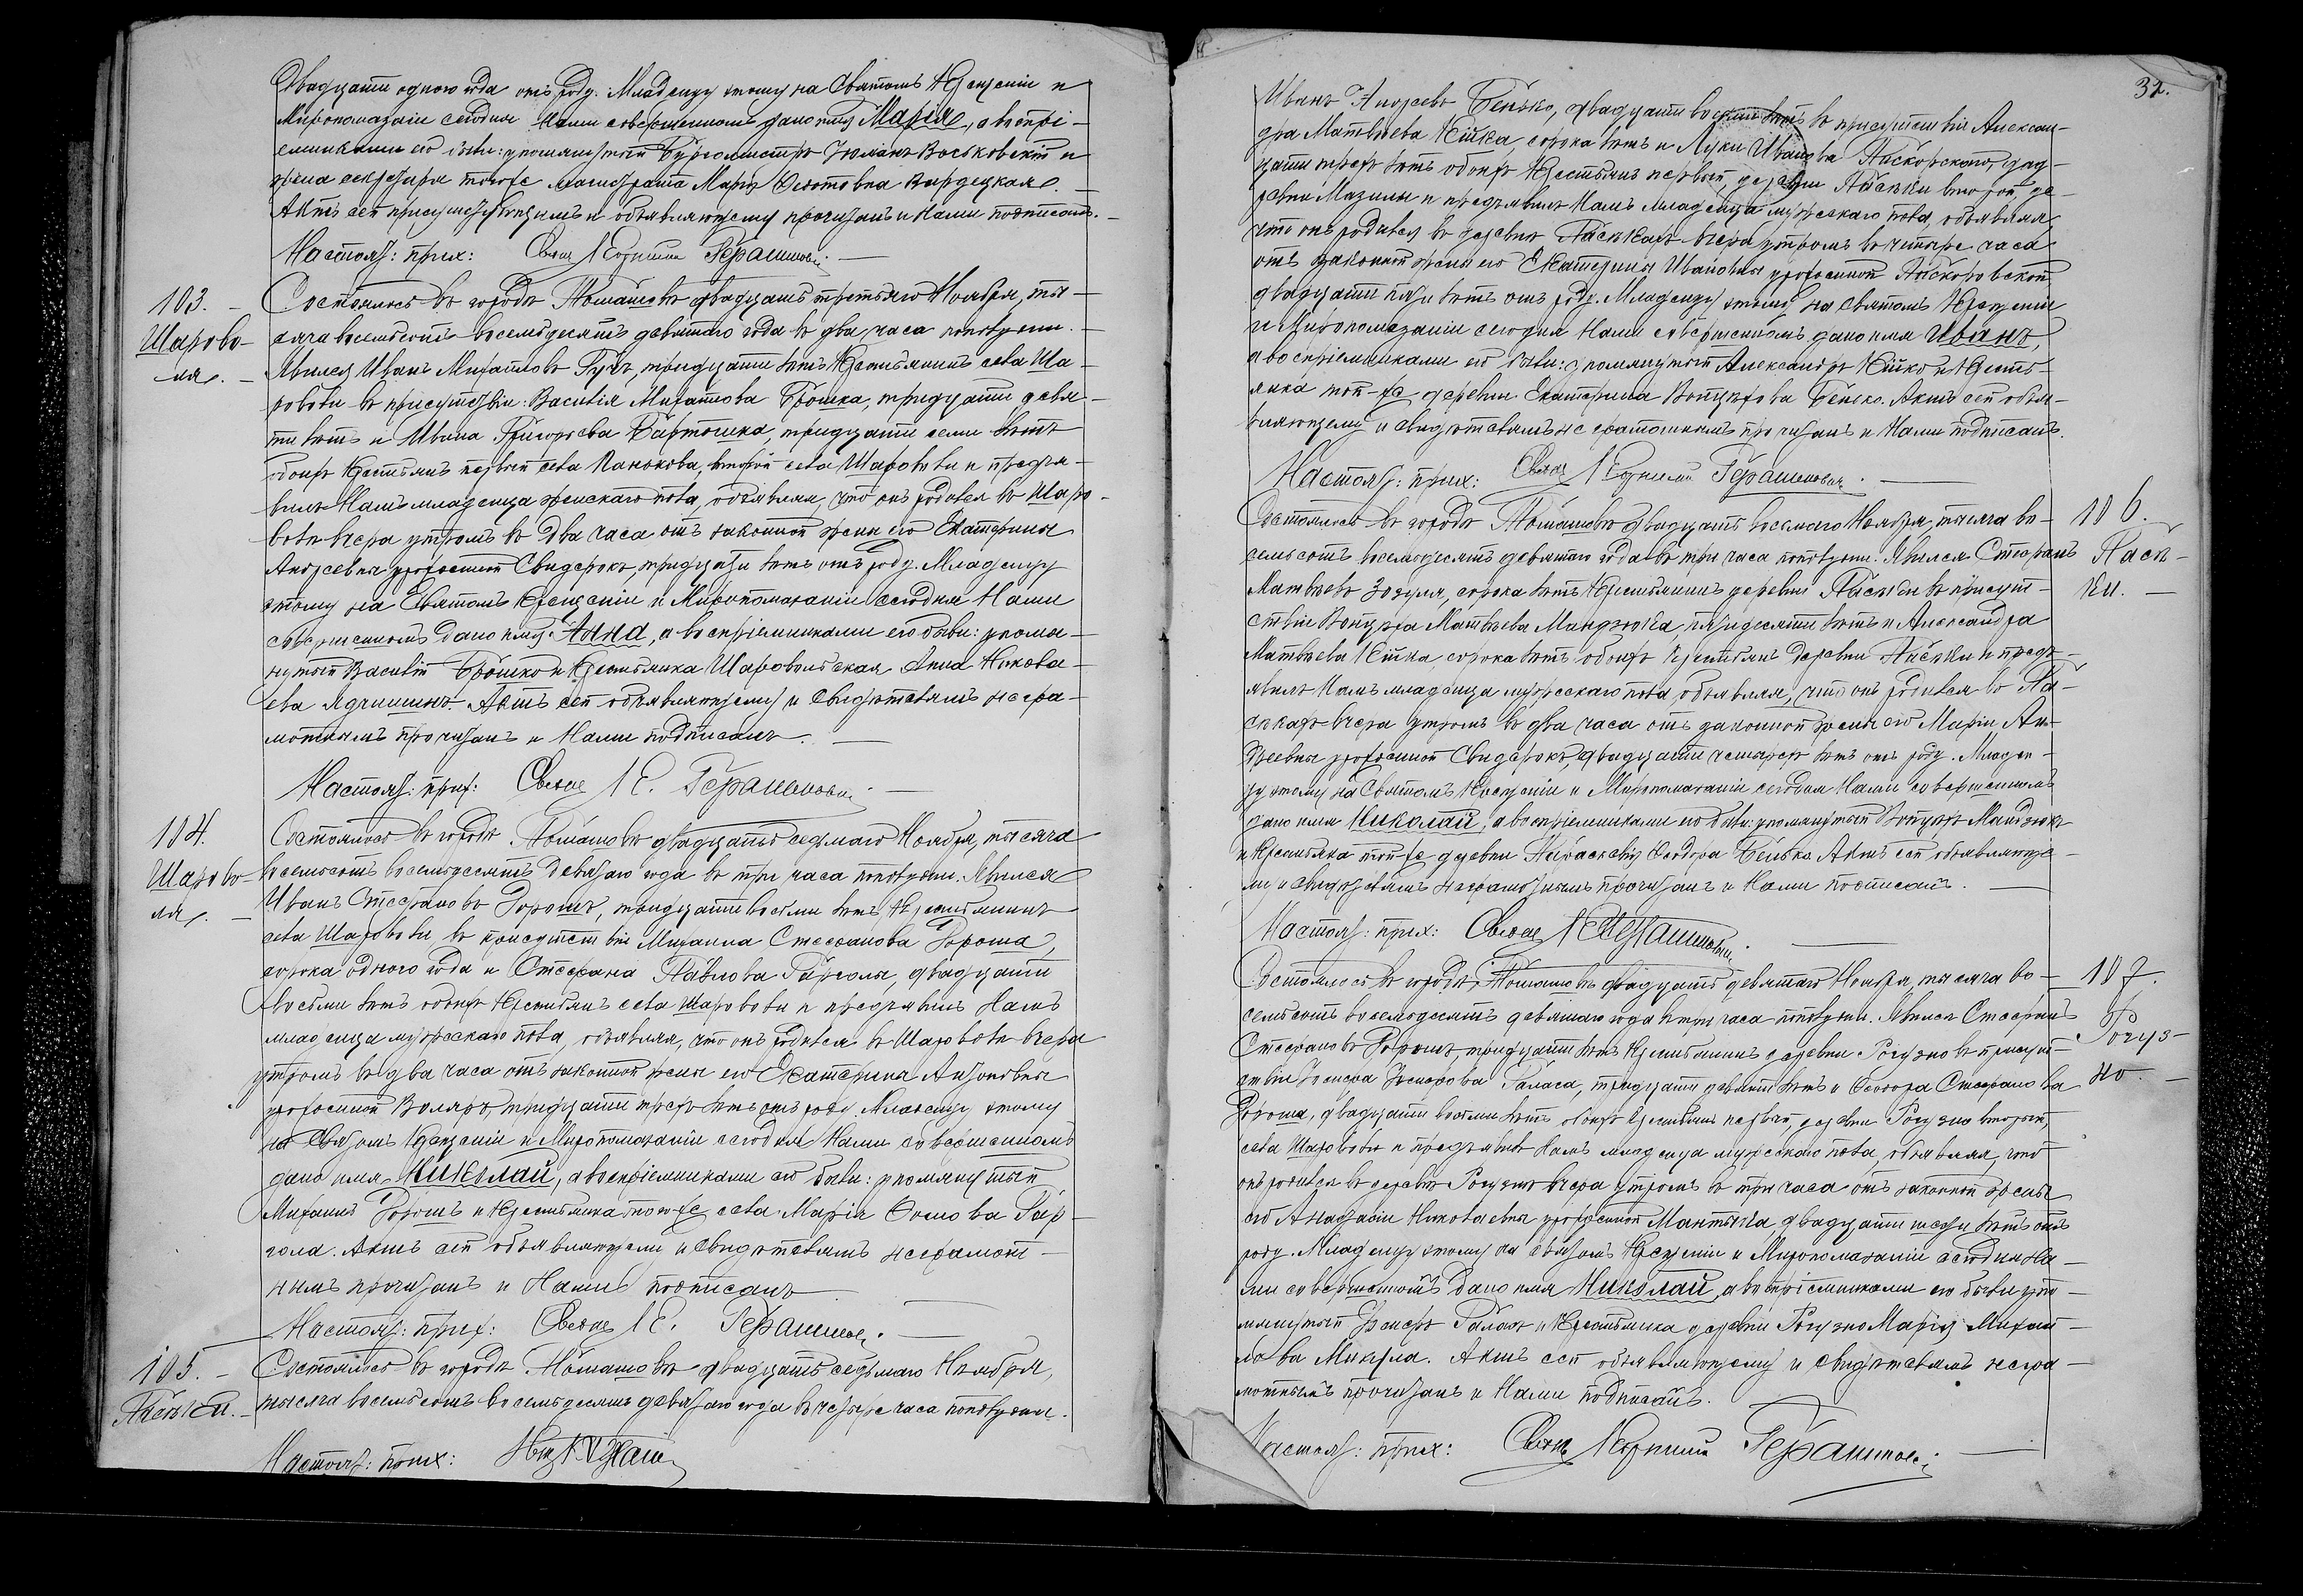 Двадцати одного года отъ роду. Младенцу этому на Святомъ Крещеніи и
Миропомазаніи сегодня Нами совершенномъ дано имя Марія, а воспрі-
емниками его были: упомянутый Бургомистръ Юліанъ Воськовскій и
жена секретаря того же магистрата Марія
Актъ сей присутствующимъ и объявляющему прочитанъ и Нами подписанъ. —
Настоят: прих: Свящ Корнилій Герашиновъ. —
103. — Состоялось въ городѣ Томашовѣ двадцать третьяго Ноября, ты-
Шарово- сяча восемьсотъ восемьдесятъ девятаго года въ два часа пополудни. —
ля. — Явился Иванъ Михайловъ Гучъ, тридцати лѣтъ Крестьянинъ села Ша-
роволи въ присутствіи: Василія Михайлова Брошка, тридцати девя-
ти лѣтъ и Ивана Григорьева Бартошика, тридцати семи лѣтъ
обоихъ Крестьянъ первый села Панькова, второй села Шароволи и предъя-
вилъ Намъ младенца женскаго пола, объявляя, что онъ родился въ Шаро-
воли вчера утромъ въ два часа отъ законной жены его Екатерины
Андреевны урожденной Свидерокъ, тридцати лѣтъ отъ роду. Младенцу
этому на Святомъ Крещеніи и Миропомазаніи сегодня Нами
совершенномъ дано имя Анна, а воспріемниками его были: упомя-
нутый Василій Брошко и Крестьянка Шаровольская Анна Никола-
ева Ядчишинъ. Актъ сей объявляющему и свидѣтелямъ негра-
мотнымъ прочитанъ и Нами подписанъ. —
Настоят: прих: Свящ К. Герашиновъ. —
104. Состоялось въ городѣ Томашовѣ двадцать седьмаго Ноября, тысяча
Шарово- восемьсотъ восемьдесятъ девятаго года въ три часа пополудни. Явился
ля. — Иванъ Стефановъ Горошъ, тридцати восьми лѣтъ Крестьянинъ
села Шароволи, въ присутствіи Михаила Стефанова Гороша,
сорока одного года и Стефана Павлова Гарголы, двадцати
восьми лѣтъ обоихъ Крестьянъ села Шароволи и предъявилъ Намъ
младенца мужескаго пола, объявляя, что онъ родился въ Шароволи вчера
утромъ въ два часа отъ законной жены его Екатерины Антоновны
урожденной Воляръ, тридцати трехъ лѣтъ отъ роду. Младенцу этому
на Святомъ Крещеніи и Миропомазаніи сегодня Нами совершенномъ
дано имя Николай, а воспріемниками его были: упомянутый
Михаилъ Горошъ и Крестьянка того же села Марія Фомова Гар-
гола. Актъ сей объявляющему и свидѣтелямъ неграмот-
нымъ прочитанъ и Нами подписанъ
Настоят: прих: Свящ К. Герашинов. —
105. — Состоялось въ городѣ Томашовѣ двадцать седьмаго Ноября,
Пасѣки. — тысяча восемьсотъ восемьдесятъ девятаго года въ четыре часа пополудни.
Настоят: прих:
32.
Иванъ Андреевъ Бенько, двадцати восьми лѣтъ въ присутствіи Александ-
дра Матвѣева Кійка, сорока лѣтъ и Луки Иванова Пасковскаго, двад-
цати трехъ лѣтъ обоихъ Крестьянъ первый, деревни Пасѣки второй де-
ревни Мазилы и предъявилъ Намъ младенца мужескаго пола, объявляя
что онъ родился въ деревнѣ Пасѣкахъ вчера утромъ въ четыре часа
отъ законной жены его Екатерины Ивановны урожденной Пасковской
двадцати пяти лѣтъ отъ роду. Младенцу этому на Святомъ Крещеніи
и Миропомазаніи сегодня Нами совершенномъ дано имя Иванъ,
а воспріемниками его были: упомянутый Александръ Кійко и Кресть-
янка той-же деревни Екатерина Бенько. Актъ сей объя-
вляющему и свидѣтелямъ неграмотнымъ прочитанъ и Нами подписанъ.
Настоят: прих: Свящ Корнилій Герашиновъ. —
Состоялось въ городѣ Томашовѣ двадцать восьмаго Ноября, тысяча во- 106.
семьсотъ восемьдесятъ девятаго года въ три часа пополудни. Явился Стефанъ Пасѣ-
Матвѣевъ Зозуля, сорока лѣтъ Крестьянинъ деревни Пасѣки въ присут- ки. —
ствіи Матвѣева Мандзюка, пятидесяти лѣтъ и Александра
Матвѣева Кійка, сорока лѣтъ обоихъ Крестьянъ деревни Пасѣки и предъ-
явилъ Намъ младенца мужескаго пола, объявляя, что онъ родился въ Па-
сѣкахъ вчера утромъ въ два часа отъ законной жены его Маріи Ан-
дреевны урожденной Свидерокъ, двадцати четырехъ лѣтъ отъ роду. Младен-
цу этому на Святомъ Крещеніи и Миропомазаніи сегодня Нами совершенномъ
дано имя Николай, а воспріемниками его были: упомянутый Мандзюкъ
и Крестьянка той-же деревни Параскевія Феодора Бенька. Актъ сей объявляюще-
му и свидѣтелямъ неграмотнымъ прочитанъ и Нами подписанъ. —
Настоят: прих: Свящ К Герашиновъ. —
Состоялось въ городѣ Томашовѣ двадцать девятаго Ноября, тысяча во- 107.
семьсотъ восемьдесятъ девятаго года въ три часа пополудни. Явился Стефанъ Рогуз-
Стефановъ Горошъ, тридцати лѣтъ Крестьянинъ деревни Рогузно въ присут- но. —
ствіи Іосифа Іосифова Галаса, тридцати девяти лѣтъ и Феодора Стефанова
Гороша, двадцати восьми лѣтъ обоихъ Крестьянъ первый, деревни Рогузно второй,
села Шароволи и предъявилъ Намъ младенца мужескаго пола, объявляя, что
онъ родился въ деревнѣ Рогузнѣ вчера утромъ въ три часа отъ законной жены
его Анастасіи Николаевны урожденной Мантыка, двадцати шести лѣтъ отъ
роду. Младенцу этому на Святомъ Крещеніи и Миропомазаніи сегодня На-
ми совершенномъ дано имя Николай, а воспріемниками его были упо-
мянутый Іосифъ Галасъ и Крестьянка деревни Рогузно Марія Михай-
лова Микула. Актъ сей объявляющему и свидѣтелямъ негра-
мотнымъ прочитанъ и Нами подписанъ.
Настоят: прих: Свящ Корнилій Герашинов. —